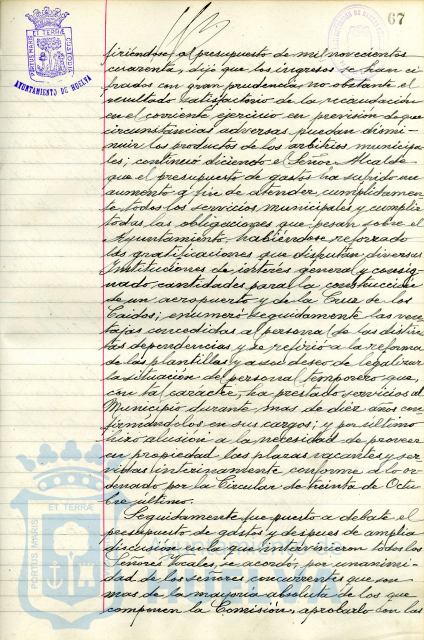 67
PORTUS MARIS ET TERRÆ CUSTODIA
AYUNTAMIENTO DE HUELVA
firiéndose al presupuesto de mil novecientos
cuarenta, dijo que los ingresos se han ci-
frados con gran prudencia, no obstante el
resultado satisfactorio de la recaudación
en el corriente ejercicio en previsión de que
circunstancias adversas puedan dismi-
nuir los productos de los arbitrios municipa-
les; continuó diciendo el Señor Alcalde
que el presupuesto de gastos ha sufrido un
aumento a fin de atender cumplidamen-
te todos los servicios municipales y cumplir
todas las obligaciones que pesan sobre el
Ayuntamiento, habiéndose reforzado
las gratificaciones que disfrutan diversas
Instituciones de interés general y consig-
nado cantidades para la construcción
de un aeropuerto y de la Cruz de los
Caidos; enumeró seguidamente las ven-
tajas concedidas al personal de las distin-
tas dependencias y se refirió a la reforma
de las plantillas y a su deseo de legalizar
la situación del personal temporero que,
con tal caracter, ha prestado servicios al
Municipio durante mas de diez años con
firmándolos en sus cargos; y por último
hizo alusión a la necesidad de proveer
en propiedad las plazas vacantes y ser
vidas interinamente conforme a lo or-
denado por la Circular de treinta de Octu
bre último.
Seguidamente fue puesto a debate el
presupuesto de gastos y despues de amplia
discusión en la que intervinieron todos los
Señores Vocales, se acordó, por unanimi-
dad de los señores concurrentes que son
mas de la mayoria absoluta de los que
componen la Comisión, aprobarlo con las
PORTUS MARIS ET TERRÆ
HUELVA